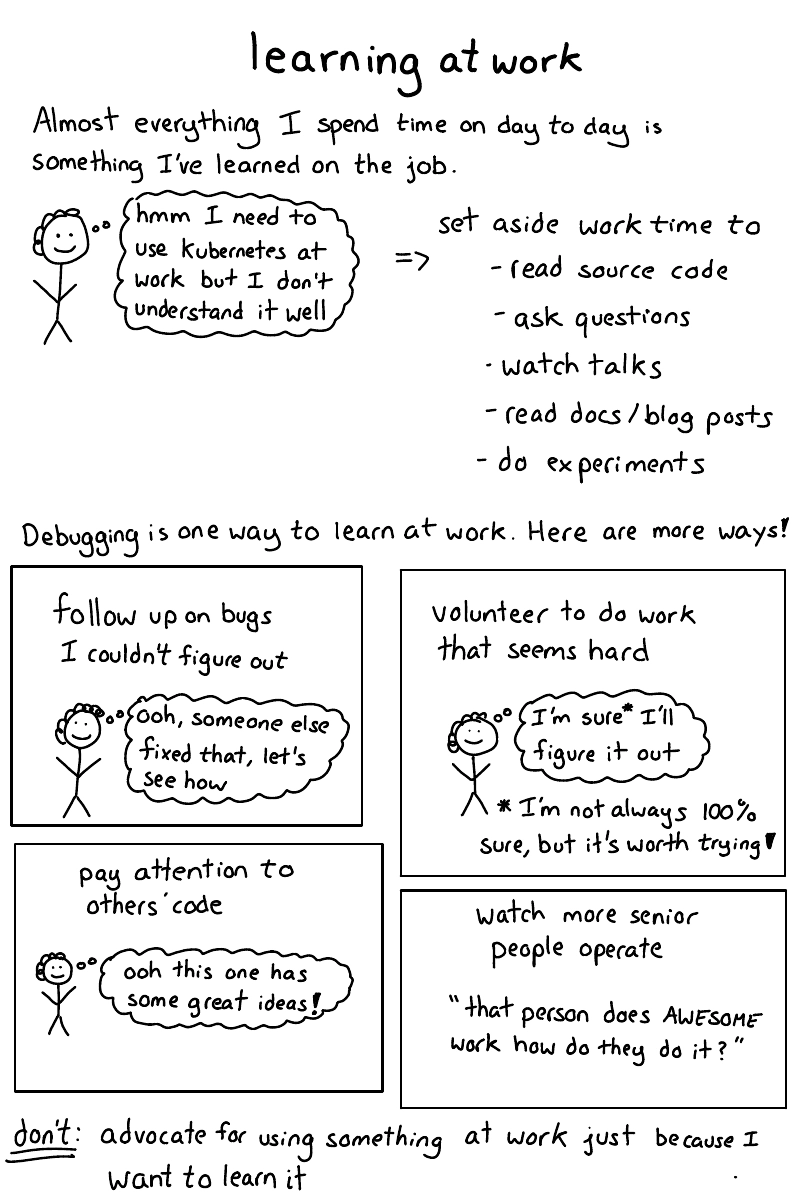 learning at work
Almost everything I spend time on day to day is
something I've learned on the job.
hmm I need to
use Kubernetes at
work but I don't
understand it well
=>
set aside work time to
- read source code
- ask questions
- watch talks
- read docs/blog posts
- do experiments
Debugging is one way to learn at work. Here are more ways!
follow up on bugs
I couldn't figure out
ooh, someone else
fixed that, let's
see how
volunteer to do work
that seems hard
I'm sure* I'll
figure it out
* I'm not always 100%
sure, but it's worth trying!
pay attention to
others' code
ooh this one has
some great ideas!
watch more senior
people operate
"that person does AWESOME
work how do they do it?"
don't: advocate for using something at work just because I
want to learn it